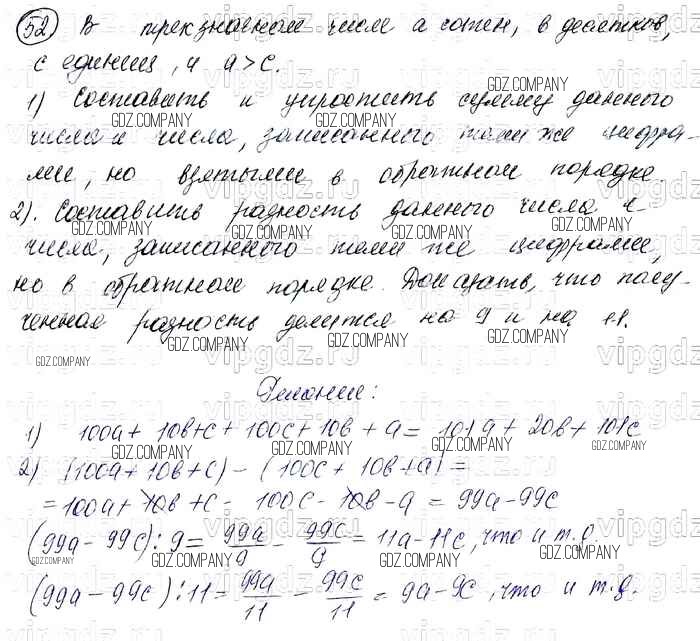 52 В трехзначном числе а сотен, в десятков,
с единиц, и а>с.
1) Составить и упростить сумму данного
числа и числа, записанного теми же цифра-
ми, но взятыми в обратном порядке.
2). Составить разность данного числа и
числа, записанного теми же цифрами,
но в обратном порядке. Доказать, что полу-
ченная разность делится на 9 и на 11.
Решение:
1) 100а + 10в + с + 100с + 10в + а = 101а + 20в + 101с
2) (100а + 10в + с) - (100с + 10в + а) =
= 100а + 10в + с - 100с - 10в - а = 99а - 99с
(99а - 99с) : 9 = 99а/9 - 99с/9 = 11а - 11с, что и т.д.
(99а - 99с) : 11 = 99а/11 - 99с/11 = 9а - 9с, что и т.д.